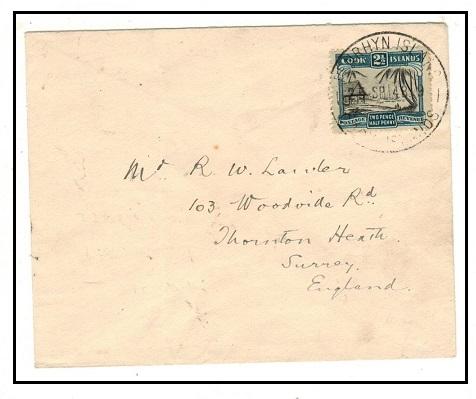 RHYN ISLAND
COOK 2½ ISLANDS
SP 14
POSTAGE TWO PENCE HALF PENNY REVENUE
Mr R. W. Lander
103, Woodvide Rd.
Thornton Heath.
Surrey.
England.